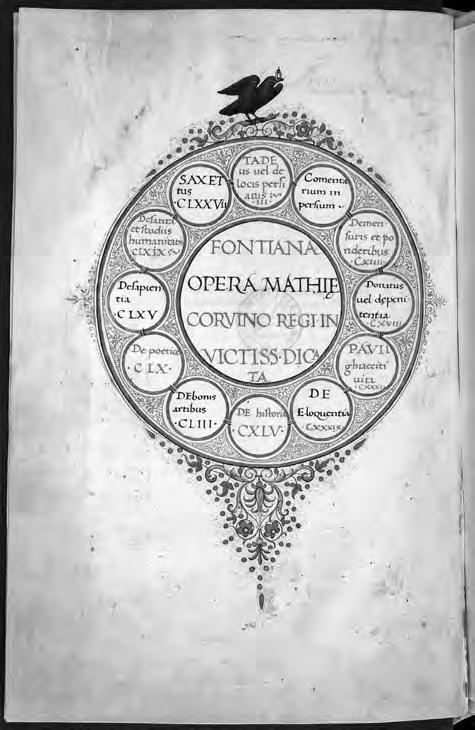 FONTIANA
OPERA MATHIĘ
CORVINO REGI IN
VICTISS·DICA
TA
TADE
us vel de
locis persi
anis
·III·
Comenta
rium in
persium
Demen
suris et po
nderibus
·CXIIII·
Donatus
vel depeni
tentia
·CXVIII·
PAVLI
ghiaceti
vita
·CXXXI·
DE
Eloquentia
·CXXXIX·
DE historia
CXLV·
DEbonis
artibus
·CLIII·
De poetice
·CLX·
Desapien
tia
·CLXV·
Desatira
et studiis
humanitatis
CLXIX
SAXET
tus
·CLXXVII